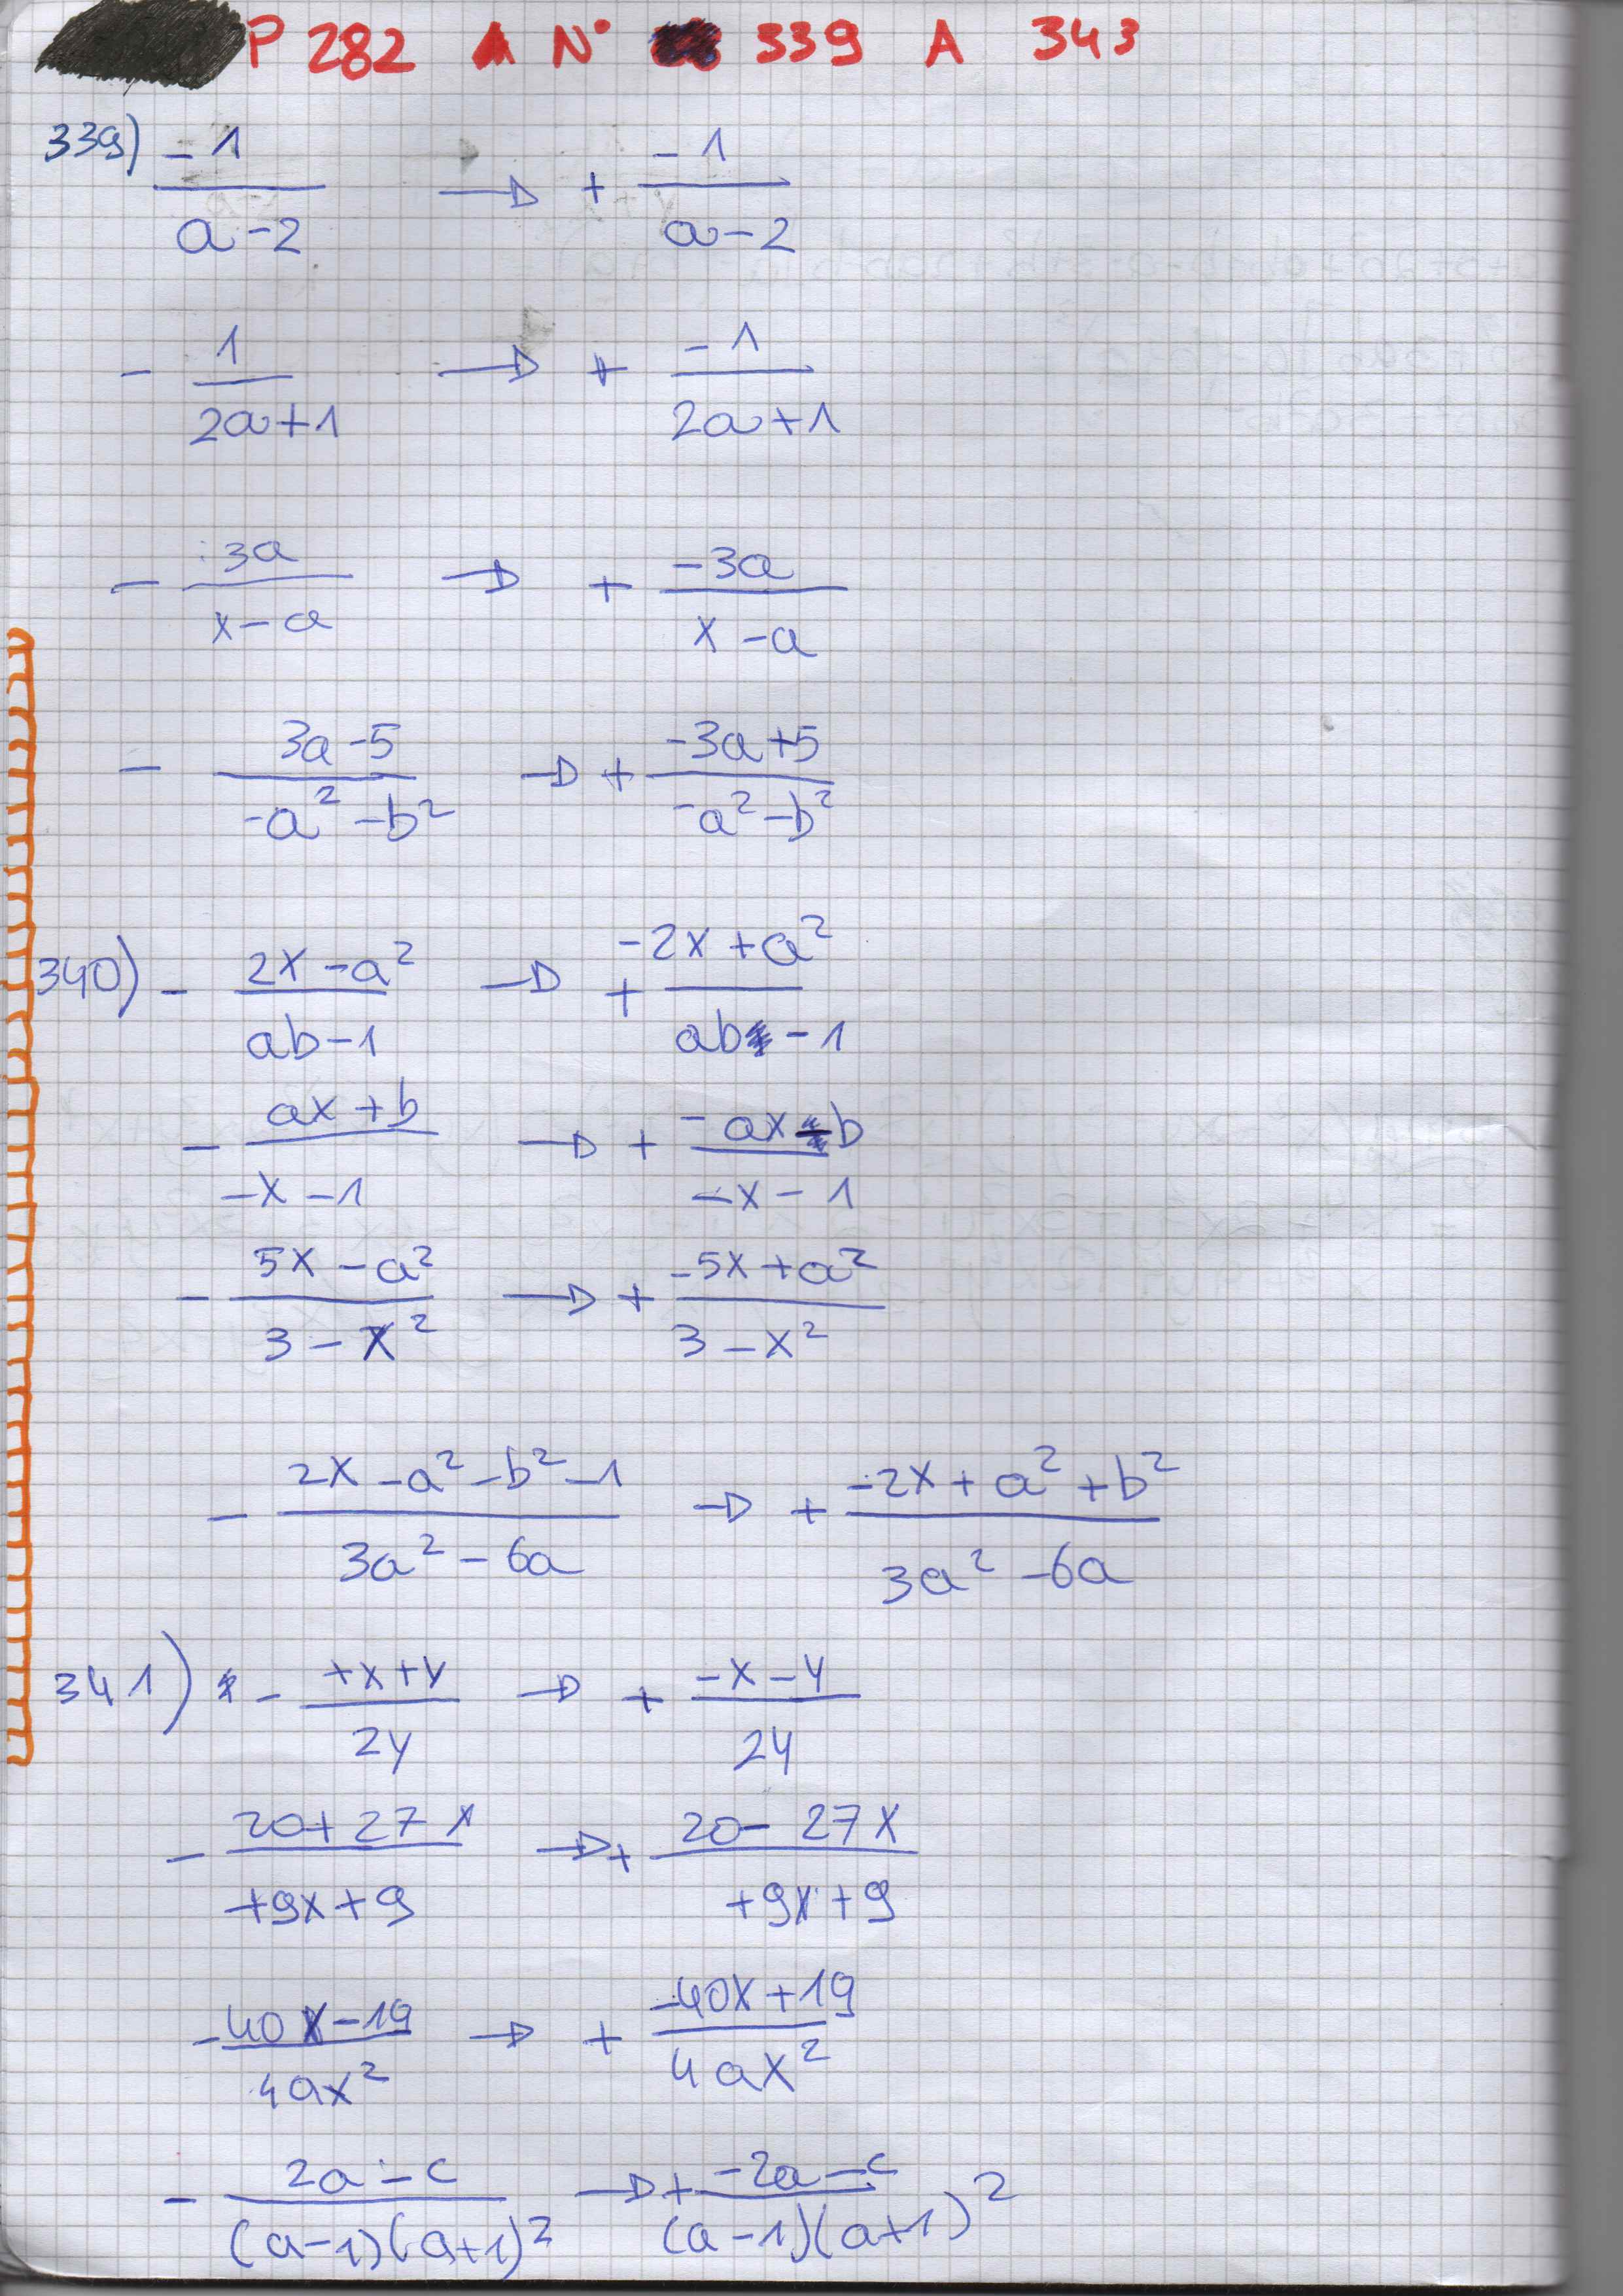 P 282 A N° 339 A 343
339) -1/(a-2) → + -1/(a-2)
- 1/(2a+1) → + -1/(2a+1)
- 3a/(x-a) → + -3a/(x-a)
- (3a-5)/(-a²-b²) → + (-3a+5)/(-a²-b²)
340) - (2x-a²)/(ab-1) → + (-2x+a²)/(ab-1)
- (ax+b)/(-x-1) → + (-ax-b)/(-x-1)
- (5x-a²)/(3-x²) → + (-5x+a²)/(3-x²)
- (2x-a²-b²-1)/(3a²-6a) → + (-2x+a²+b²)/(3a²-6a)
341) - (+x+y)/(2y) → + (-x-y)/(2y)
- (20+27x)/(+9x+9) → + (20-27x)/(+9x+9)
- (40x-19)/(4ax²) → + (-40x+19)/(4ax²)
- (2a-c)/((a-1)(a+1)²) → + (-2a-c)/((a-1)(a+1)²)